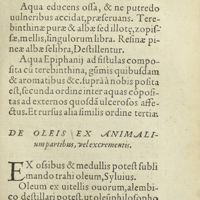 Aqua educens ossa, & ne putredo
vulneribus accidat, præseruans. Tere-
binthinæ puræ & albæ sed illotæ, zopis-
sæ, mellis, singulorum libra. Resinæ pi-
neæ albæ selibra, Destillentur.
Aqua Epiphanij ad fistulas compo-
sita cū terebinthina, gūmis quibusdam
& aromatibus &c. suprà à nobis posita
est, secunda ordine inter aquas compos-
tas ad externos quosdā ulcerosos affe-
ctus. Et rursus alia similis ordine tertia
DE OLEIS EX ANIMALI-
um partibus, vel excrementis.
EX ossibus & medullis potest subli
mando trahi oleum, Syluius.
Oleum ex uitellis ouorum, alembi-
co destillari potest, ut oleū philosopho